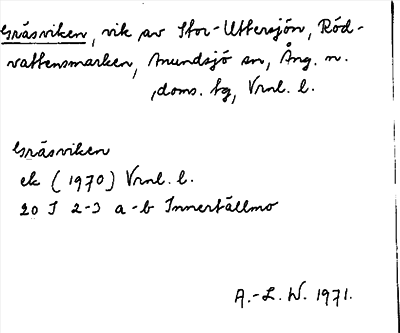 Gräsviken, vik av Stor-Uttersjön, Röd-
vattensmarken, Anundsjö sn, Ång. n.
,doms. tg, Vrnl. l.
Gräsviken
ek (1970) Vrnl. l.
20 I 2-3 a-b Innertällmo
A.-L. W. 1971.